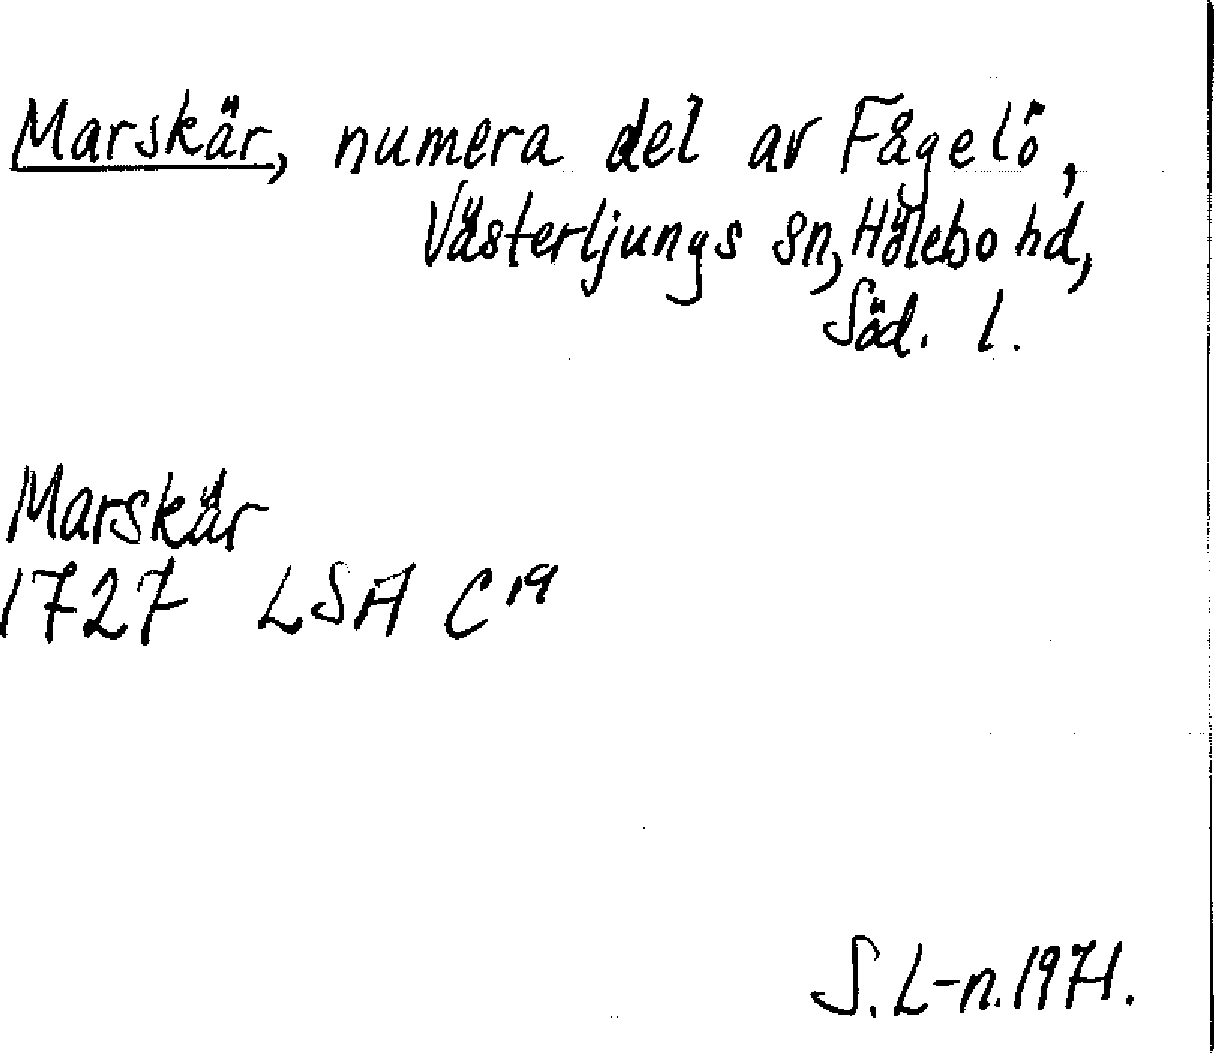 Marskär, numera del av Fågelö,
Västerljungs sn, Hölebo hd,
Söd. l.
Marskär
1727 LSA C 19
S. L-n. 1971.